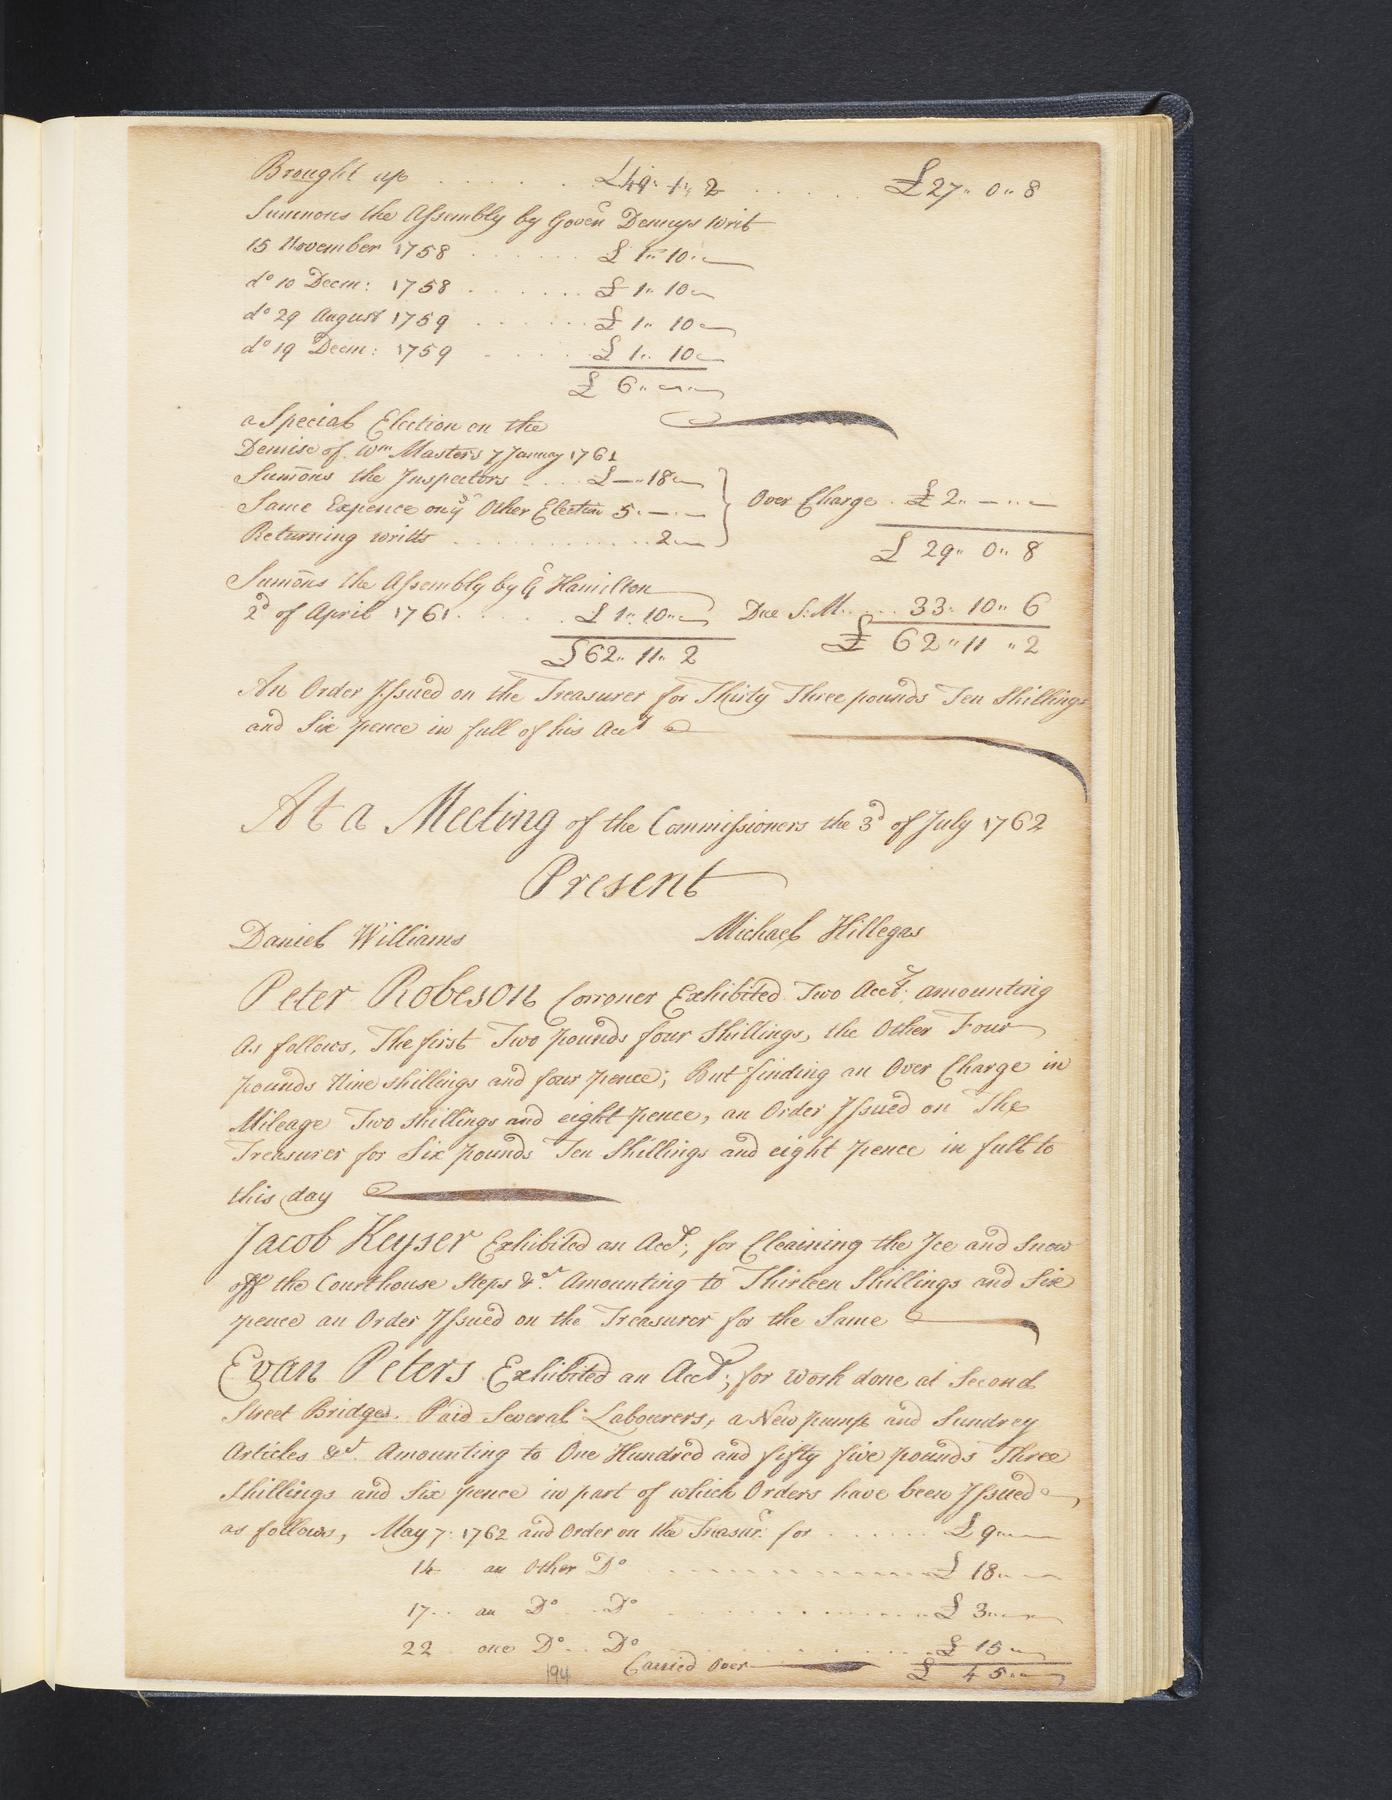 Brought up . . . . . . . £49" 1" 2 . . . . . £27" 0" 8
Summons the Assembly by Goverr Dennys Writ
15 November 1758 . . . . . . £ 1" 10" —
do 10 Decm: 1758 . . . . . . £ 1" 10 —
do 29 August 1759 . . . . . . £ 1" 10 —
do 19 Decm: 1759 . . . . . £ 1" 10 —
£ 6" — —
a Special Election on the
Demise of Wm Masters 7 January 1761
Sumons the Inspectors . . . . £ —" 18 —
Same Expence on ye Other Election 5. — . — } Over Charge . £ 2" — " —
Returning writts . . . . . . . . . . . 2 — £ 29" 0" 8
Sumons the Assembly by Gr Hamilton
2d of April 1761 . . . . . . £ 1" 10" — Due S. M. . . . . 33" 10" 6
£62" 11" 2 £ 62 " 11 " 2
An Order Issued on the Treasurer for Thirty Three pounds Ten Shillings
and Six pence in full of his Acct
At a Meeting of the Commissioners the 3d of July 1762
Present
Daniel Williams Michael Hillegas
Peter Robeson Corroner Exhibited Two Accts. amounting
As follows, The first Two pounds four Shillings, the Other Four
pounds Nine shillings and four pence; But finding an Over Charge in
Mileage Two shillings and eight pence, an Order Issued on The
Treasurer for Six pounds Ten Shillings and eight pence in full to
this day
Jacob Keyser Exhibited an Acct; for Cleaining the Ice and Snow
off the Courthouse Steps &c. Amounting to Thirteen Shillings and Six
pence an Order Issued on the Treasurer for the Same
Evan Peters Exhibited an Acct; for Work done at Second
Street Bridges. Paid Several Labourers, a New pump and Sundrey
Articles &c. Amounting to One Hundred and fifty five pounds Three
Shillings and Six pence in part of which Orders have been Issued
as follows, May 7. 1762 and Order on the Treasur. for . . . . . . £ 9 — —
14 an Other Do . . . . . . . . . . . £ 18 — —
17 . . an Do . . Do . . . . . . . . . . £ 3 — —
22 one Do . . Do . . . . . . . . . . £ 15 —
194 Carried Over £ 45 —